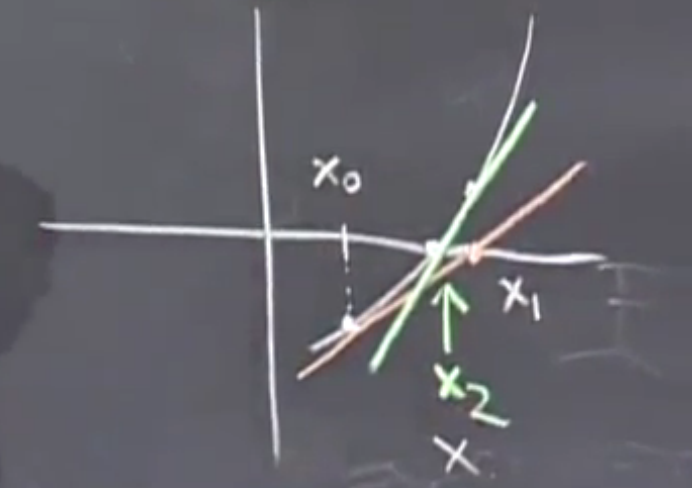 x₀
x₁
x₂
x